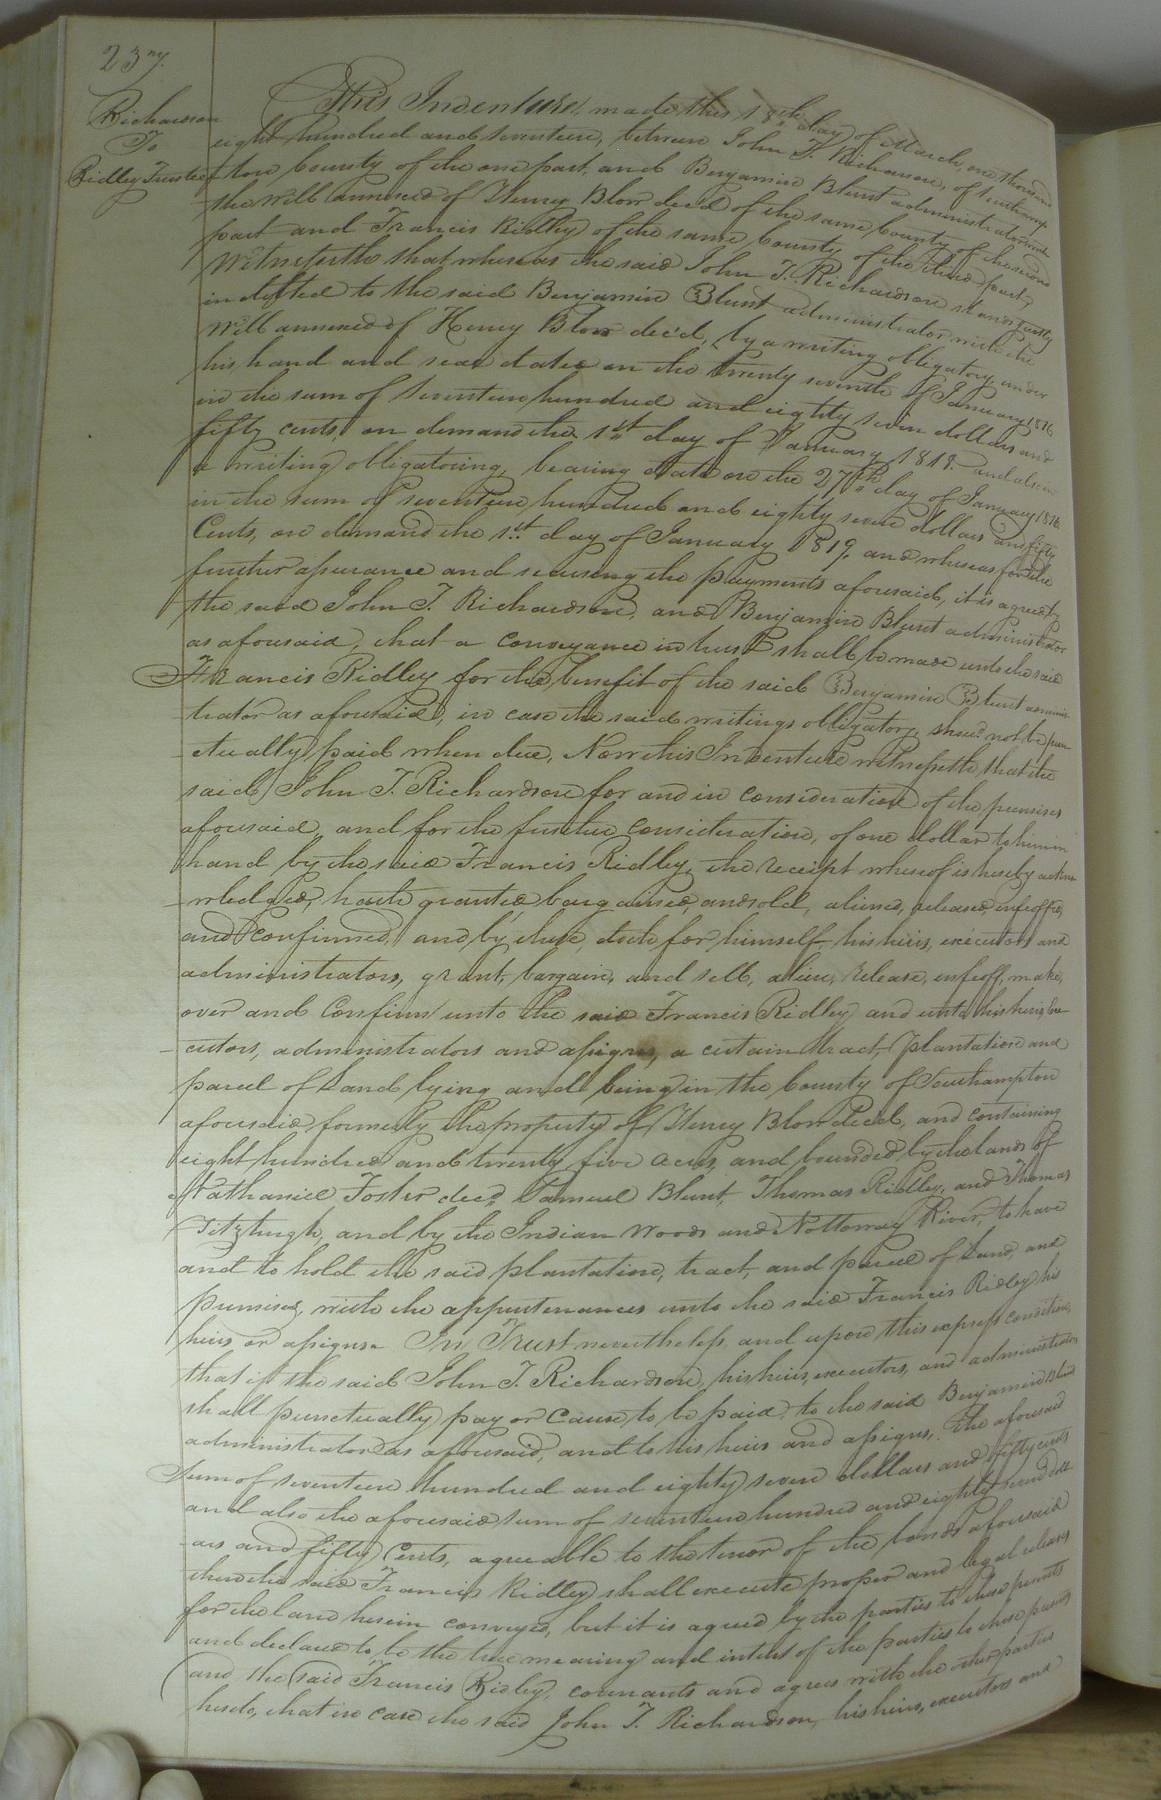 237.
Richardson
To
Ridley Trustee
This Indenture, made this 18th day of March, one thousand
eight hundred and seventeen, between John T. Richardson, of Southamp
ton County of the one part, and Benjamin Blunt administrator with
the will annexed of Henry Blow decd of the same County of the second
part and Francis Ridley of the same County of the third part,
Witnesseth that whereas the said John T. Richardson stands justly
indebted to the said Benjamin Blunt administrator with the
Will annexed of Henry Blow dec'd, by a writing obligatory under
his hand and seal dated on the twenty seventh of January 1816
in the sum of seventeen hundred and eighty seven dollars and
fifty cents, on demand the 1st day of January 1818. and also in
a writing obligatoring, bearing date on the 27th day of January 1816
in the sum of seventeen hundred and eighty seven dollars and fifty
Cents, on demand the 1st day of January 1819. and whereas for the
further assurance and securing the payments aforesaid, it is agreed by
the said John T. Richardson, and Benjamin Blunt administrator
as aforesaid, that a conveyance in trust shall be made unto the said
Francis Ridley for the benefit of the said Benjamin Blunt adminis
trator as aforesaid, in case the said writings obligatory, shall not be pun
ctually paid when due, Now this Indenture witnesseth, that the
said John T. Richardson for and in consideration of the premises
aforesaid, and for the further consideration, of one dollar to him in
hand by the said Francis Ridley, the receipt whereof is hereby ackno
wledged, hath granted, bargained, and sold, aliened, released, enfeoffed,
and confirmed, and by these doth for himself, his heirs, executors and
administrators, grant, bargain, and sell, alien, release, enfeoff, make,
over and Confirm unto the said Francis Ridley and unto his heirs, Exe
cutors, administrators and assigns, a certain tract, plantation and
parcel of Land lying and being in the County of Southampton
aforesaid, formerly the property of Henry Blow Decd, and containing
eight hundred and twenty five acres, and bounded by the lands of
Nathaniel Foster decd, Samuel Blunt, Thomas Ridley, and Thomas
Fitzhugh, and by the Indian Woods and Nottoway River, to have
and to hold the said plantation, tract, and parcel of Land, and
premises, with the appurtenances unto the said Francis Ridley his
heirs or assigns. In Trust nevertheless, and upon this express condition,
that if the said John T. Richardson, his heirs, executors, and administrators
shall punctually pay or cause, to be paid, to the said Benjamin Blunt
administrator as aforesaid, and to his heirs and assigns, the aforesaid
Sum of seventeen hundred and eighty seven dollars and fifty cents
and also the aforesaid sum of seventeen hundred and eighty seven doll
ars and fifty Cents, agreeable to the tenor of the bonds aforesaid
then the said Francis Ridley shall execute proper and legal releases
for the land herein conveyed, but it is agreed by the parties to these presents
and declared to be the true meaning and intent of the parties to these presents
and the said Francis Ridley, covenants and agrees with the other parties
hereto, that in case the said John T. Richardson, his heirs, executors and